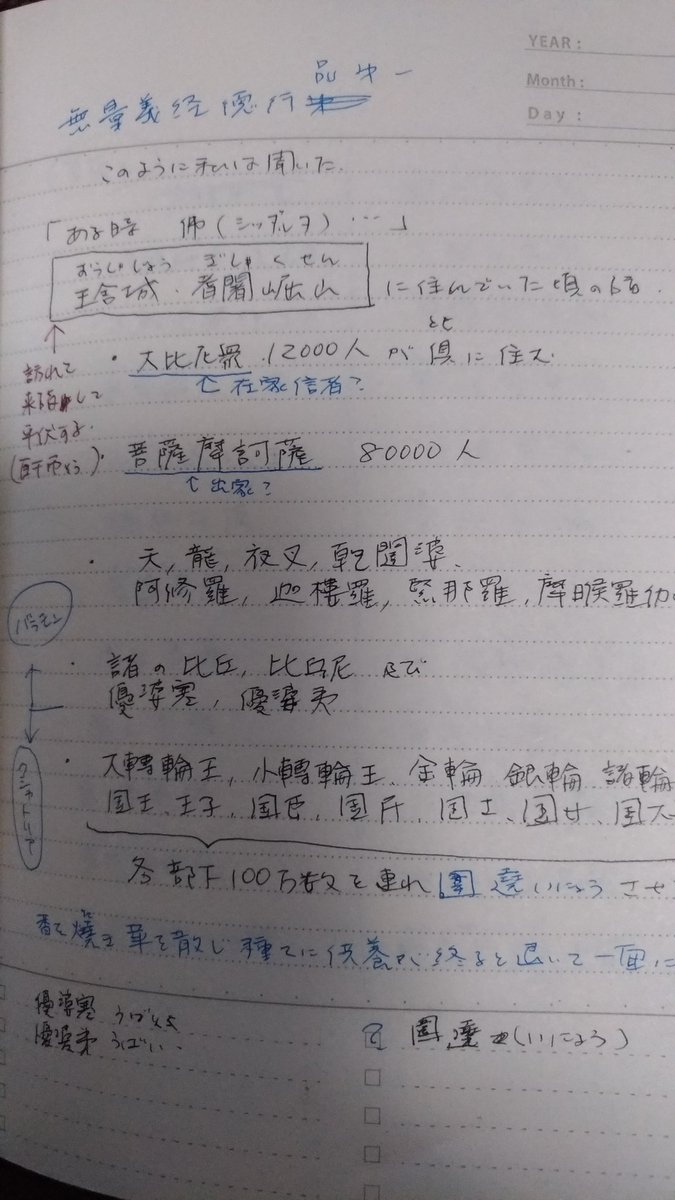 YEAR :
Month :
Day :
無量義経徳行品第一
このように私は聞いた.
「ある時 佛(シッダルタ)…」
おうしゃじょう ぎしゃくせん
王舎城・耆闍崛山 に住んでいた頃の話.
・大比丘衆 12000人が 倶に住ス
とも
↑在家信者?
訪れて
来
平伏する.
・菩薩摩訶薩 80000人
↑出家?
・天,龍,夜叉,乾闥婆,
阿修羅,迦樓羅,緊那羅,摩睺羅伽
バラモン
・諸の比丘,比丘尼 及び
優婆塞,優婆夷
クシャトリア
・大轉輪王,小轉輪王、金輪 銀輪 諸輪
国王、王子、国臣、国民、国士、国女、国大
各部下100万数を連れ 圍遶いにょうさせ
香を燒き華を散じ種々に供養が終ると退いて一面に
優婆塞 うばそく
優婆夷 うばい
圍遶(いにょう)